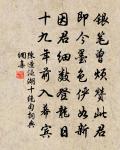 銀筆曾煩贊此君
即今墨色伊如新
因君細數登龍日
十九年前入幕賓
陳造涵湖十絕句詞典
網集